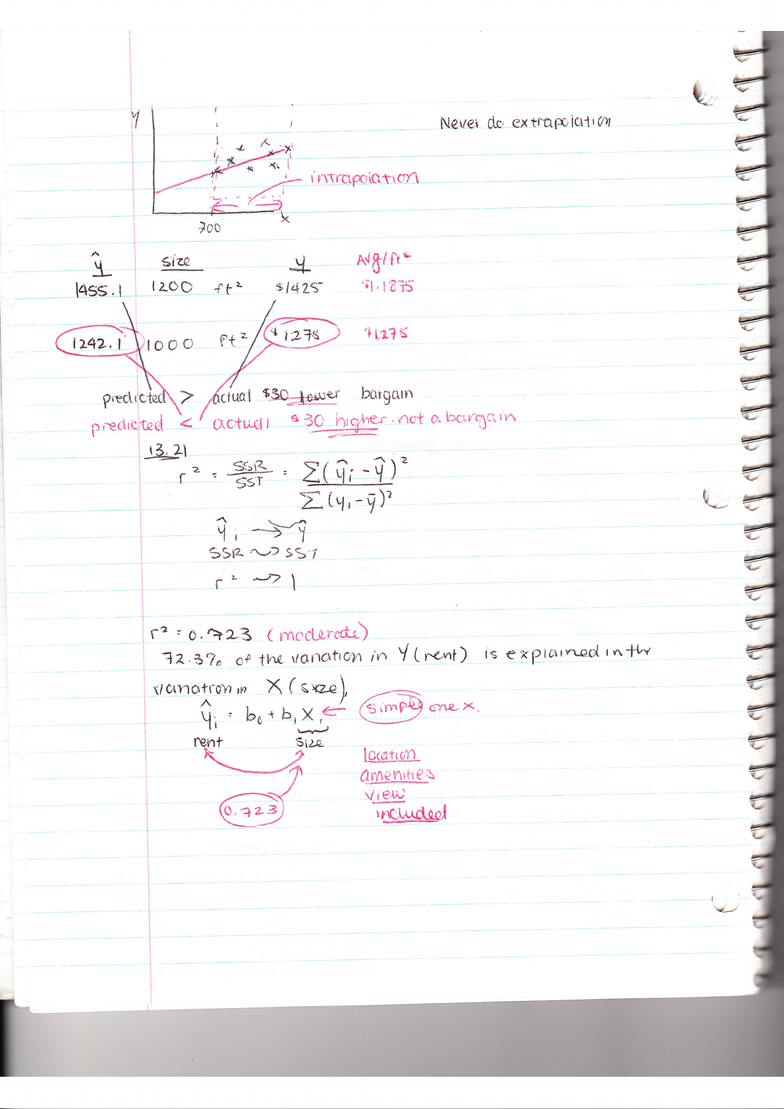 Y
Never do extrapolation
intrapolation
700
x
ŷ size y Avg/ft²
1455.1 1200 ft² $1425 $1.1875
1242.1 1000 ft² $1275 $1.275
predicted > actual $30 lower bargain
predicted < actual $30 higher. not a bargain
13.21
r² = SSR/SST = Σ(ŷi - ŷ)² / Σ(yi - ȳ)²
ŷi → ŷ
SSR ~> SST
r² ~> 1
r² = 0.723 (moderate)
72.3% of the variation in Y (rent) is explained in the
variation in X (size),
ŷi = b0 + b1 Xi ← simple one x.
rent size
location
amenities
view
0.723
included